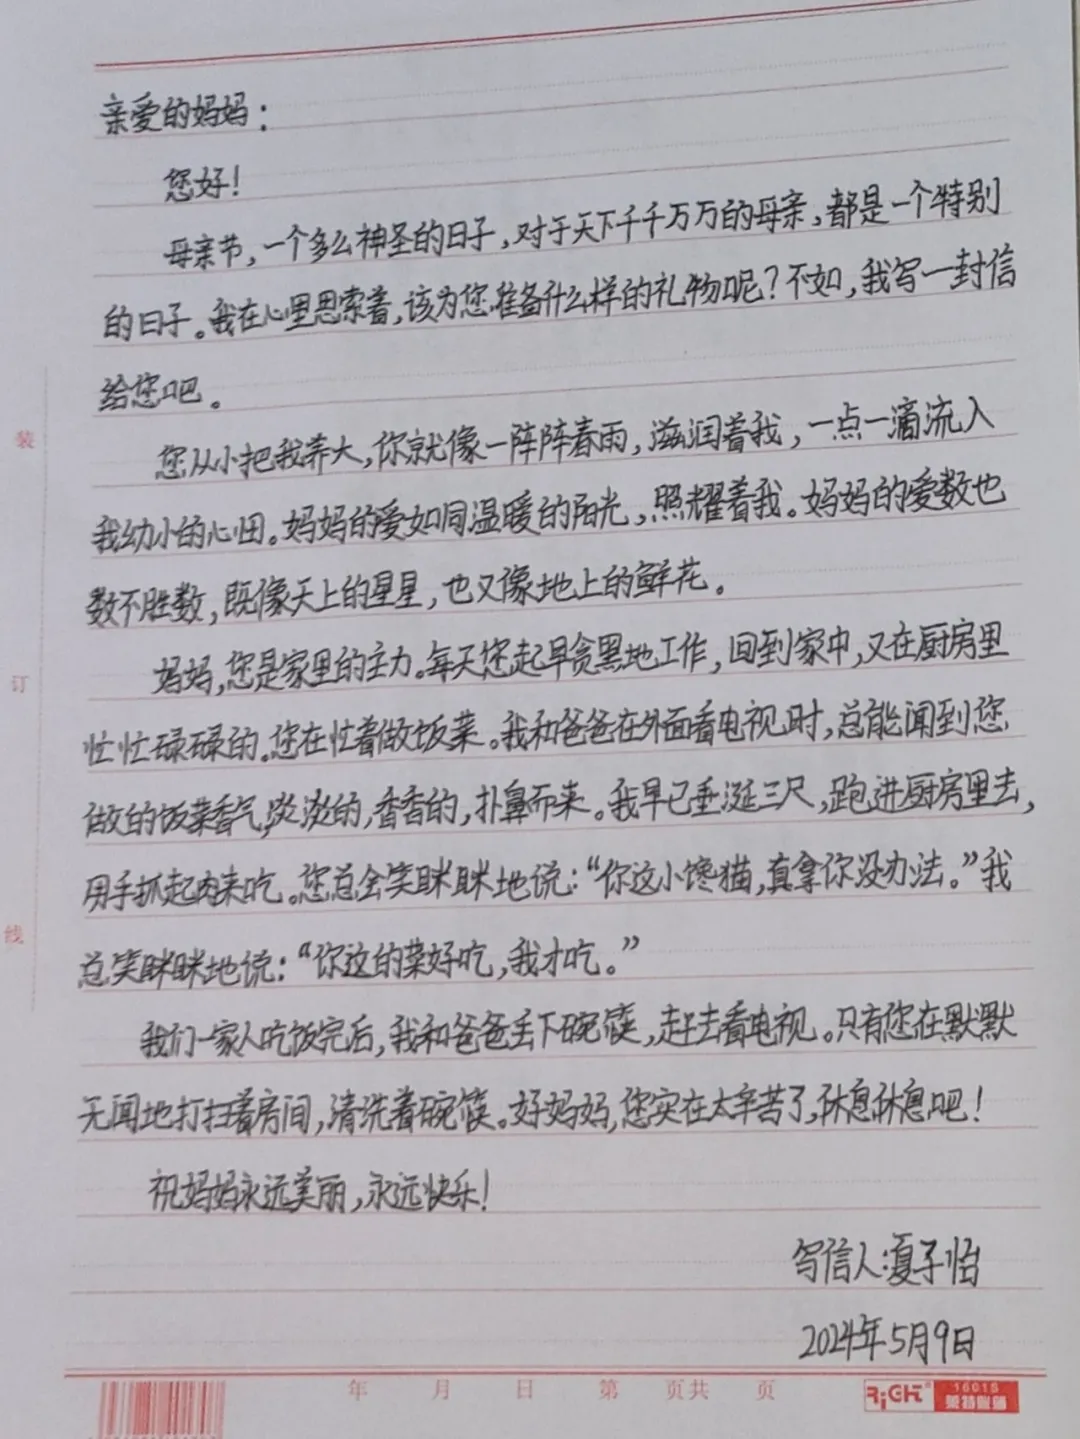 亲爱的妈妈：
您好！
母亲节，一个多么神圣的日子，对于天下千千万万的母亲，都是一个特别
的日子。我在心里思索着，该为您准备什么样的礼物呢？不如，我写一封信
给您吧。
您从小把我养大，你就像一阵阵春雨，滋润着我，一点一滴流入
我幼小的心田。妈妈的爱如同温暖的阳光，照耀着我。妈妈的爱数也
数不胜数，既像天上的星星，也又像地上的鲜花。
妈妈，您是家里的主力。每天您起早贪黑地工作，回到家中，又在厨房里
忙忙碌碌的。您在忙着做饭菜。我和爸爸在外面看电视时，总能闻到您
做的饭菜香气，淡淡的，香香的，扑鼻而来。我早已垂涎三尺，跑进厨房里去，
用手抓起肉来吃。您总会笑眯眯地说：“你这小馋猫，真拿你没办法。”我
总笑眯眯地说：“你这的菜好吃，我才吃。”
我们一家人吃饭完后，我和爸爸丢下碗筷，赶去看电视。只有您在默默
无闻地打扫着房间，清洗着碗筷。好妈妈，您实在太辛苦了，休息休息吧！
祝妈妈永远美丽，永远快乐！
写信人：夏子怡
2024年5月9日
装
订
线
年 月 日 第 页共 页
RiGHT
16018
莱特